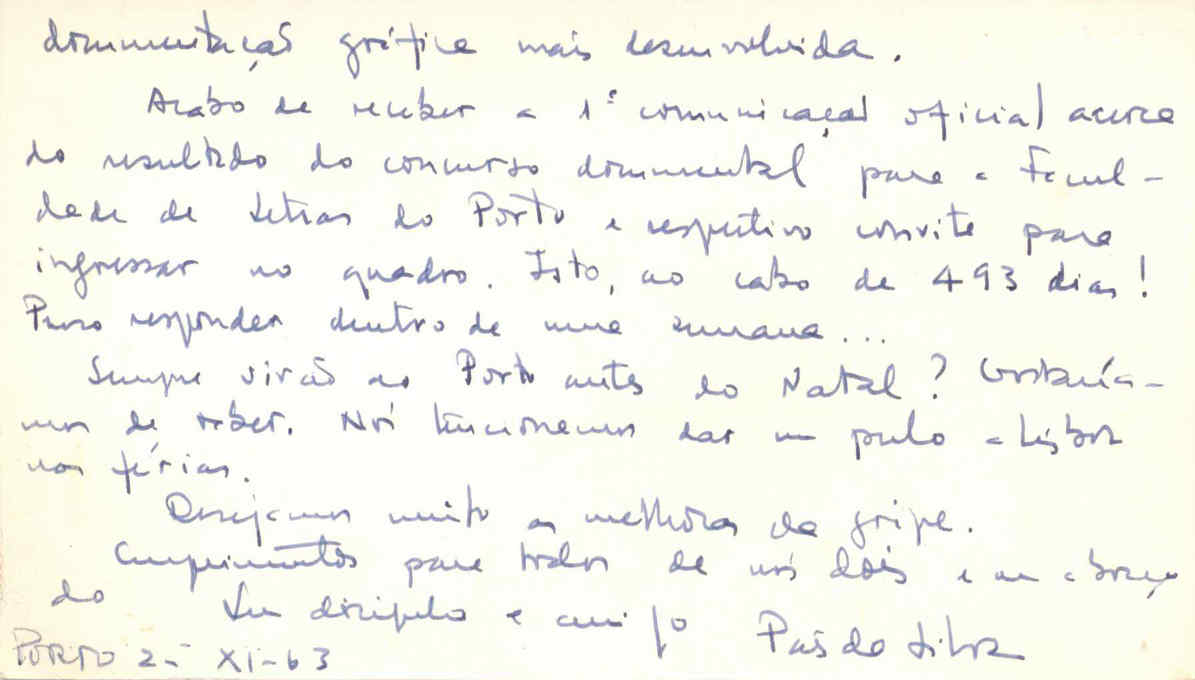 documentação gráfica mais desenvolvida.
Acabo de receber a 1ª comunicação oficial acerca
do resultado do concurso documental para a Facul-
dade de Letras do Porto e respectivo convite para
ingressar no quadro. Isto, ao cabo de 493 dias!
Penso responder dentro de uma semana...
Sempre virão ao Porto antes do Natal? Gostaría-
mos de saber. Nós tencionamos dar um pulo a Lisboa
nas férias.
Desejamos muito as melhoras da gripe.
Cumprimentos para todos de nós dois e um abraço
do Seu discípulo e amigo Pais da Silva
PORTO 2- XI-63